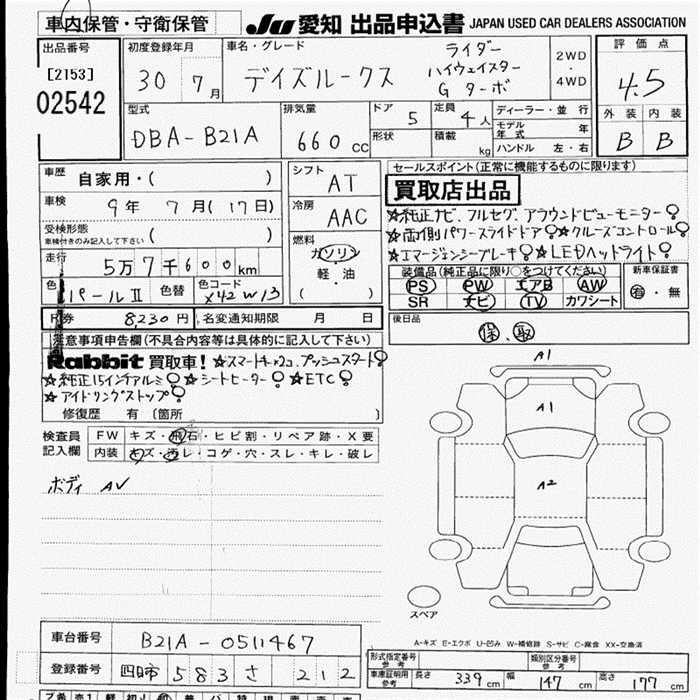 車内保管・守衛保管
JU 愛知 出品申込書 JAPAN USED CAR DEALERS ASSOCIATION
出品番号
[2153]
02542
初度登録年月
30 7月
車名・グレード
デイズルークス
ライダー
ハイウェイスター
Gターボ
2WD
・
4WD
評価点
4.5
外装 内装
B B
型式
DBA-B21A
排気量
660 cc
ドア
5
定員
4人
形状
積載
kg
ディーラー・並行
モデル年式 年
ハンドル 左・右
車歴
自家用・( )
車検
9年 7月(17日)
受検形態
車検付きのみ記入して下さい ( )
走行
5万7千600km
色
パールⅡ
色替
色コード
X42 W13
シフト
AT
冷房
AAC
燃料
ガソリン
軽・油
( )
R券 8,230円
名変通知期限 月 日
セールスポイント(正常に機能するものに限ります)
買取店出品
★純正ナビ、フルセグ、アラウンドビューモニター
★両側パワースライドドア ★クルーズコントロール
★エマージェンシーブレーキ ★LEDヘッドライト
装備品(純正品に限り○をつけてください)
PS PW エアB AW
SR ナビ TV カワシート
新車保証書
有・無
後日品
保、取
注意事項申告欄(不具合内容等は具体的に記入して下さい)
Rabbit 買取車! ★スマートキー×2コ、プッシュスタート
★純正15インチアルミ ★シートヒーター ★ETC
★アイドリングストップ
修復歴 有〔箇所 〕
検査員
記入欄
FW キズ・飛石・ヒビ割・リペア跡・X要
内装 キズ・汚レ・コゲ・穴・スレ・キレ・破レ
ボディ AV
A1
A1
A2
スペア
A-キズ E-エクボ U-凹み W-補修跡 S-サビ C-腐食 XX-交換済
車台番号 B21A-0511467
登録番号 四日市 583 さ 212
形式指定番号
参考
類別区分番号
参考
車庫証明用
参考
長さ 339cm 幅 147cm 高さ 177cm